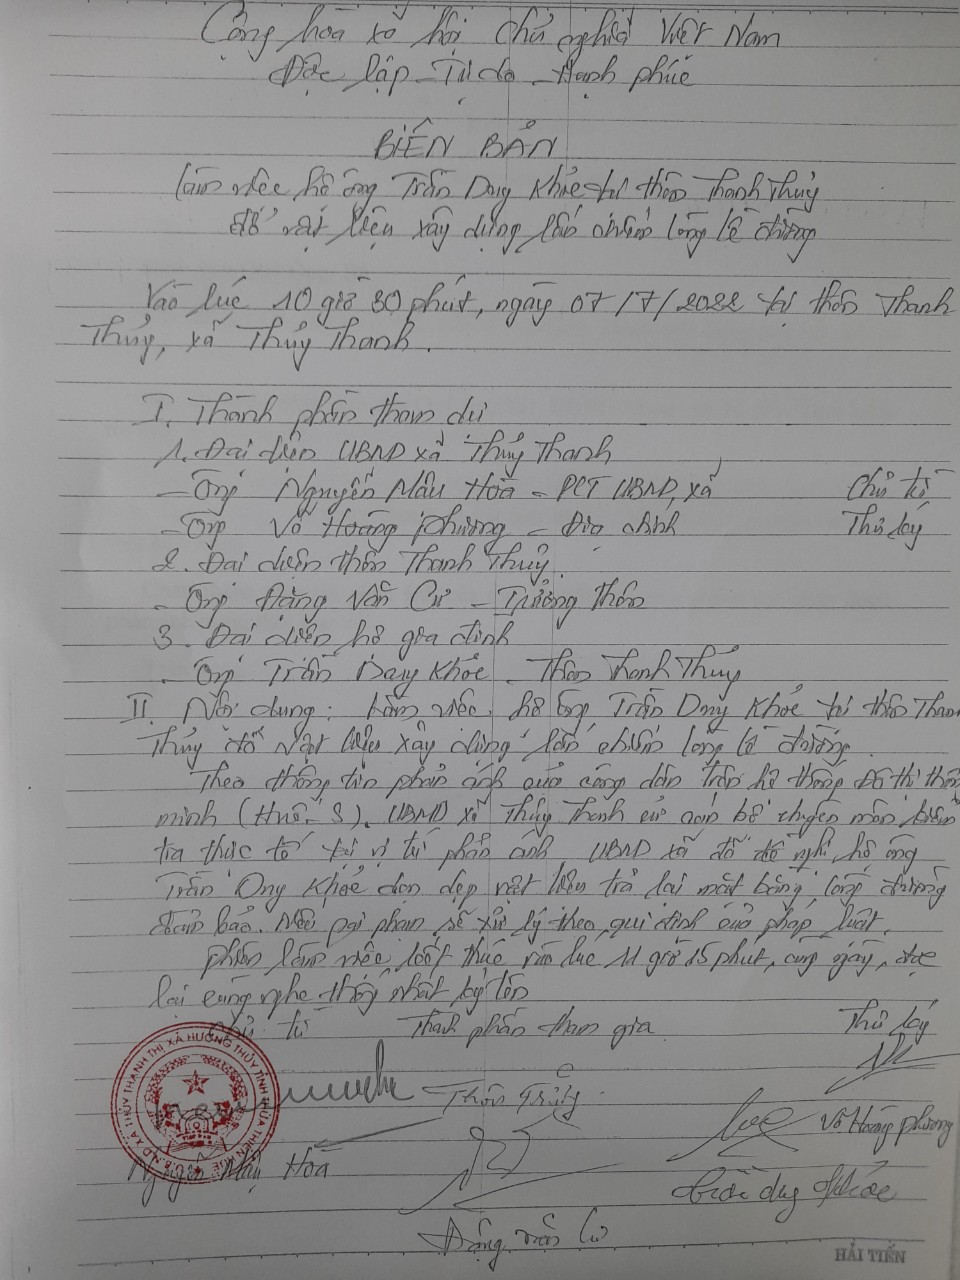 Cộng hòa xã hội chủ nghĩa Việt Nam
Độc lập - Tự do - Hạnh phúc
BIÊN BẢN
Làm việc hộ ông Trần Duy Khỏe tại thôn Thanh Thủy
đổ vật liệu xây dựng lấn chiếm lòng lề đường
Vào lúc 10 giờ 30 phút, ngày 07/7/2022 tại thôn Thanh
Thủy, xã Thủy Thanh.
I. Thành phần tham dự
1. Đại diện UBND xã Thủy Thanh
- Ông Nguyễn Mậu Hoà - PCT UBND xã Chủ trì
- Ông Võ Hoàng Phương - Địa chính Thư ký
2. Đại diện thôn Thanh Thủy.
- Ông Đặng Văn Cư - Trưởng thôn
3. Đại diện hộ gia đình
- Ông Trần Duy Khỏe - Thôn Thanh Thủy
II. Nội dung: Làm việc hộ ông Trần Duy Khỏe tại thôn Thanh
Thủy đổ vật liệu xây dựng lấn chiếm lòng lề đường.
Theo thông tin phản ánh của công dân trên hệ thống đô thị thông
minh (Huế-S). UBND xã Thủy Thanh cử cán bộ chuyên môn kiểm
tra thực tế tại vị trí phản ánh. UBND xã đã đề nghị hộ ông
Trần Duy Khỏe dọn dẹp vật liệu trả lại mặt bằng lòng đường
đảm bảo. Nếu vi phạm sẽ xử lý theo qui định của pháp luật.
Phiên làm việc kết thúc vào lúc 11 giờ 15 phút, cùng ngày, đọc
lại cùng nghe thống nhất ký tên
Chủ trì Thành phần tham gia Thư ký
Thôn Trưởng
U.B.N.D XÃ THỦY THANH THỊ XÃ HƯƠNG THỦY TỈNH THỪA THIÊN HUẾ
Võ Hoàng Phương
Nguyễn Mậu Hoà
Trần Duy Khỏe
Đặng Văn Cư
HẢI TIẾN